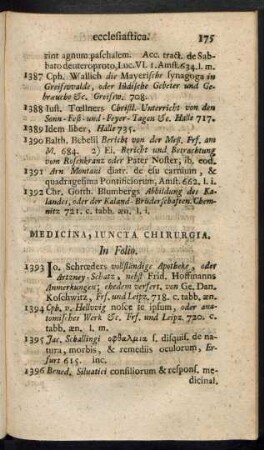 ecclesiastica. 175
rint agnum paschalem. Acc. tract. de Sab-
bato deuteroproto, Luc. VI. 1. Amst. 634. l. m.
1387 Cph. Wallich die Mayerische synagoga in
Greifswalde, oder Jüdische Gebeter und Ge-
bräuche &c. Greifsw. 708.
1388 Iust. Tœllners Christl. Unterricht von den
Sonn-Fest-und-Feyer-Tagen &c. Halle 717.
1389 Idem liber, Halle 735.
1390 Balth. Bebelii Bericht von der Mess, Frf. am
M. 684. 2) Ei. Bericht und Betrachtung
vom Rosenkranz oder Pater Noster, ib. eod.
1391 Arn Montani diatr. de esu carnium, &
quadragesima Pontificiorum, Amst. 662. l. i.
1392 Chr. Gotth. Blumbergs Abbildung des Ka-
landes, oder der Kaland-Brüderschaften. Chem-
nitz 721. c. tabb. æn. l. i.
MEDICINA, IUNCTA CHIRURGIA.
In Folio.
1393 Jo. Schrœders vollständige Apotheke, oder
Artzney-Schatz, nebst Frid. Hoffmanns
Anmerkungen; ehedem verfert. von Ge. Dan.
Koschwitz, Frf. und Leipz. 718. c. tabb. æn.
1394 Cph. v. Hellwig nosce te ipsum, oder ana-
tomisches Werk &c. Frf. und Leipz. 720. c.
tabb, æn. l. m.
1395 Jac. Schallingi οφθαλμια s. disquis. de na-
tura, morbis, & remediis oculorum, Er-
furt 615. inc.
1396 Bened. Siluatici consiliorum & respons. me-
dicinal.